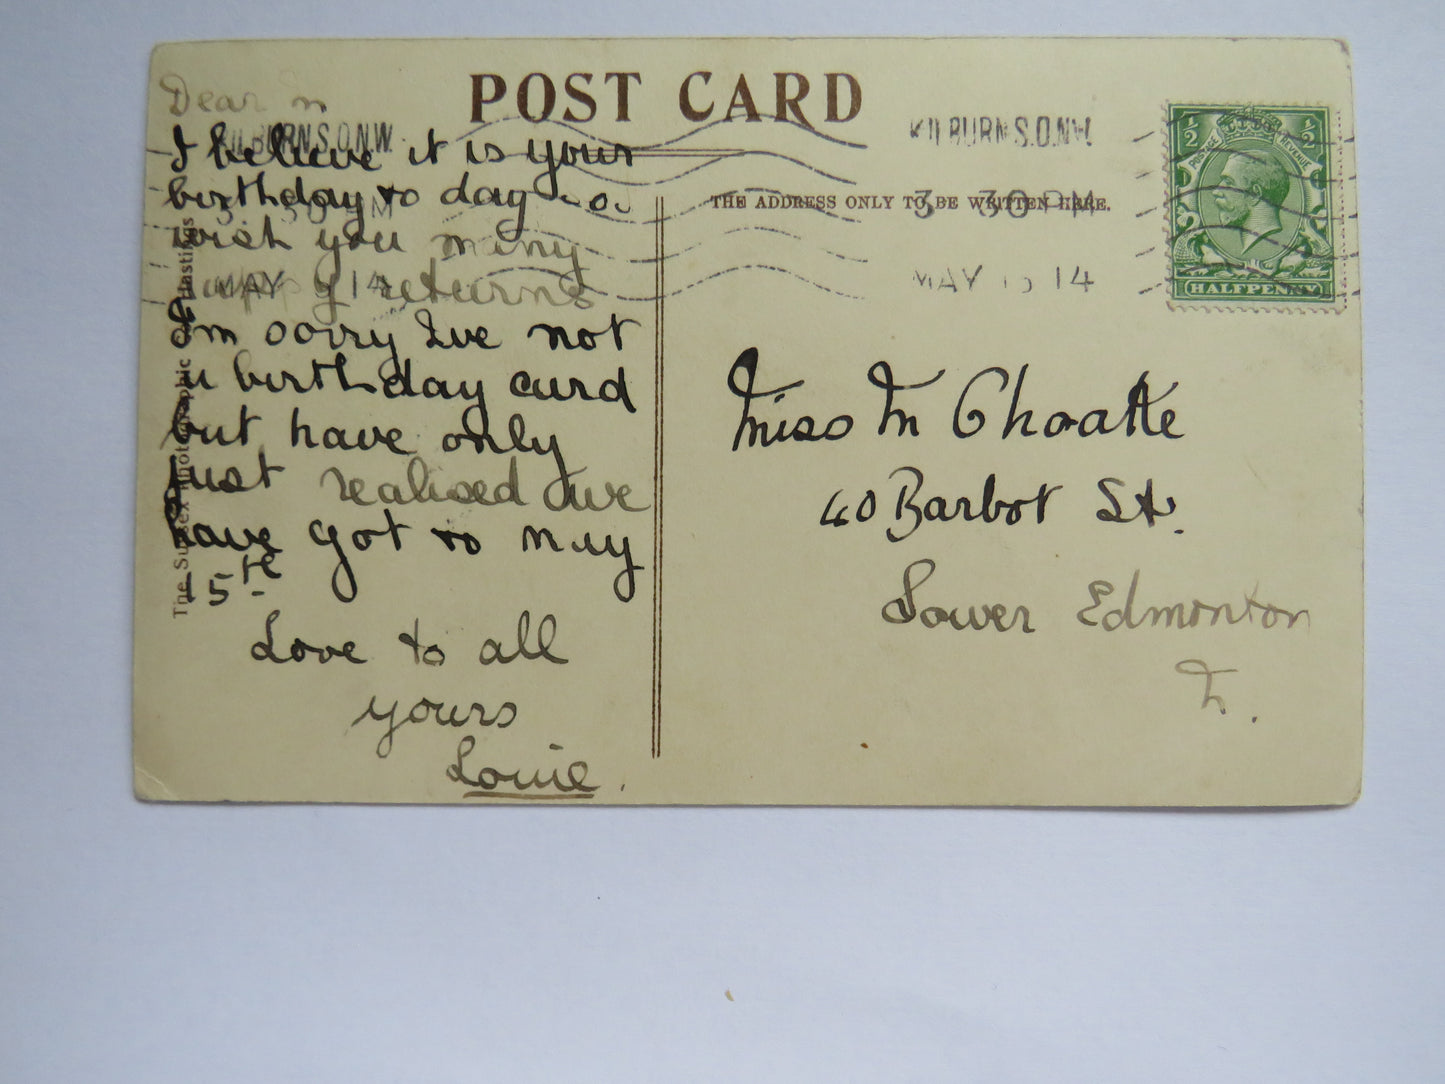 POST CARD
Dear
KILBURN.S.O.N.W.
KILBURN.S.O.N.W.
I believe it is your
birthday to day so
wish you many
happy returns
I'm sorry Ive not
a birthday card
but have only
just realised we
have got to May
15th
Love to all
yours
Louie.
THE ADDRESS ONLY TO BE WRITTEN HERE.
3 30 PM
3 30 PM
MAY 14
MAY 15 14
½ ½
POSTAGE REVENUE
HALFPENNY
Miss M Choatte
40 Barbot St.
Lower Edmonton
N.
The Sussex Photographic Co. Hastings